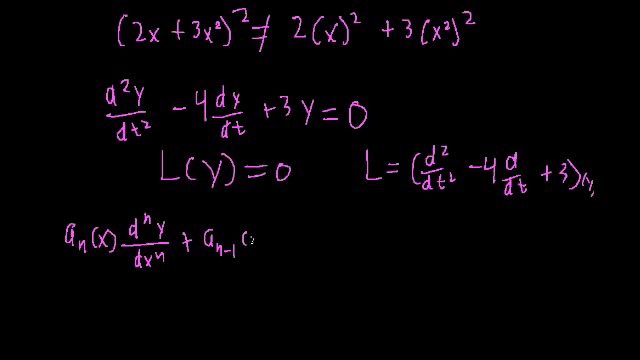 (2x + 3x²)² ≠ 2(x)² + 3(x²)²
d²y/dt² - 4 dy/dt + 3y = 0
L(y) = 0 L = (d²/dt² - 4 d/dt + 3)(y)
aₙ(x) dⁿy/dxⁿ + aₙ₋₁(